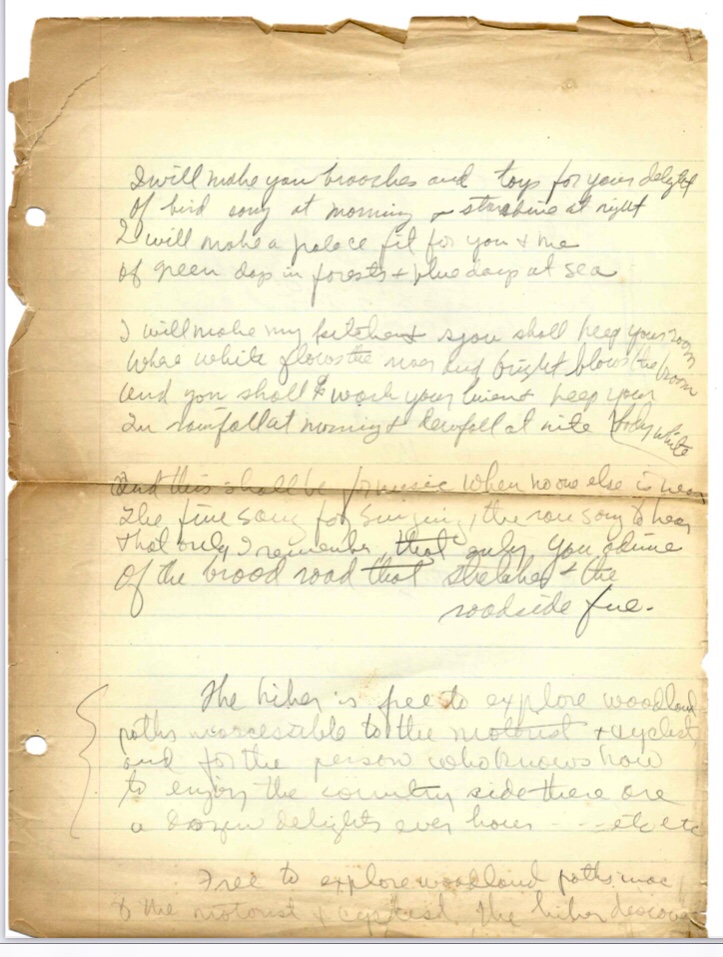 I will make you brooches and toys for your delight
Of bird song at morning & starshine at night
I will make a palace fit for you & me
Of green days in forests & blue days at sea
I will make my kitchen & you shall keep your room
Where white flows the river and bright blows the broom
And you shall wash your linen & keep your
body white
In rainfall at morning & dewfall at nite
And this shall be for music when no one else is near
The fine song for singing, the rare song to hear
That only I remember, that only you admire
Of the broad road that stretches & the
roadside fire.
The hiker is free to explore woodland
paths inaccessible to the motorist & cyclist
and for the person who knows how
to enjoy the country side there are
a dozen delights ever hour - - - etc etc
Free to explore woodland paths inac
to the motorist & cyclist. The hiker discover